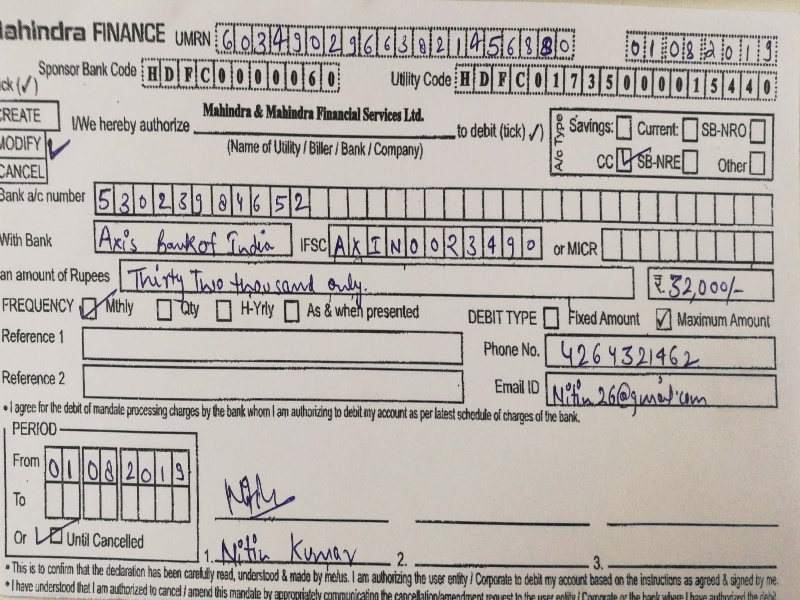 Mahindra FINANCE UMRN 6034902966382145688 0 01082019
Sponsor Bank Code HDFC0000060 Utility Code HDFC01735000015440
CREATE
MODIFY
CANCEL
I/We hereby authorize Mahindra & Mahindra Financial Services Ltd. to debit (tick ✓)
(Name of Utility / Biller / Bank / Company)
A/c Type Savings: Current: SB-NRO
CC SB-NRE Other
Bank a/c number 53023984652
With Bank Axis Bank of India IFSC AXIN0023490 or MICR
an amount of Rupees Thirty Two thousand only. ₹.32,000/-
FREQUENCY Mthly Qty H-Yrly As & when presented DEBIT TYPE Fixed Amount Maximum Amount
Reference 1 Phone No. 4264321462
Reference 2 Email ID Nitin26@gmail.com
• I agree for the debit of mandate processing charges by the bank whom I am authorizing to debit my account as per latest schedule of charges of the bank.
PERIOD
From 01082019
To
Or Until Cancelled
1. Nitin Kumar 2. 3.
• This is to confirm that the declaration has been carefully read, understood & made by me/us. I am authorizing the user entity / Corporate to debit my account based on the instructions as agreed & signed by me.
• I have understood that I am authorized to cancel / amend this mandate by appropriately communicating the cancellation/amendment request to the user entity / Corporate or the bank where I have authorized the debit